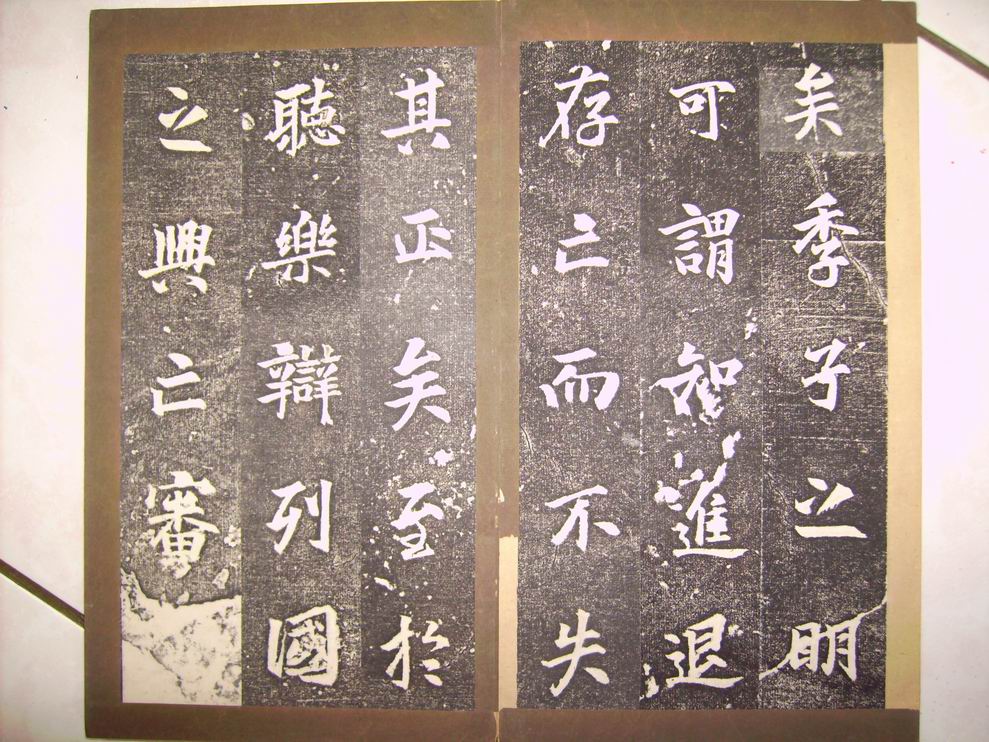 矣季子之明
可謂智進退
存亡而不失
其正矣至於
聽樂辯列國
之興亡審